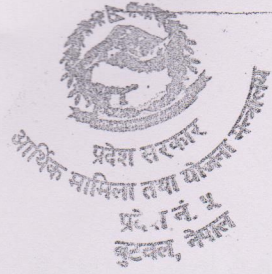 प्रदेश सरकार
आर्थिक मामिला तथा योजना मन्त्रालय
प्रदेश नं. ५
बुटवल, नेपाल